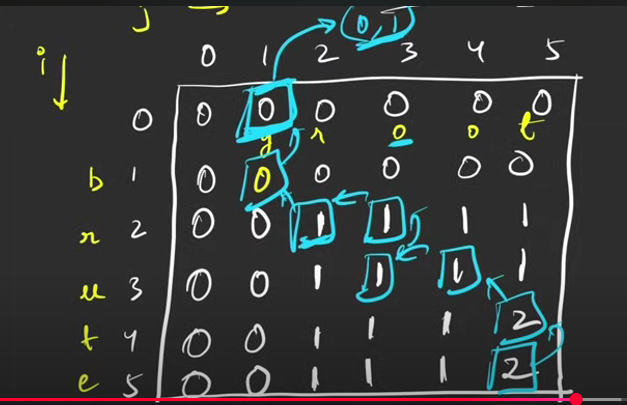 j
(0,1)
i
0 1 2 3 4 5
0 0 0 0 0 0 0
g r o o t
b 1 0 0 0 0 0 0
r 2 0 0 1 1 1 1
u 3 0 0 1 1 1 1
t 4 0 0 1 1 1 2
e 5 0 0 1 1 1 2